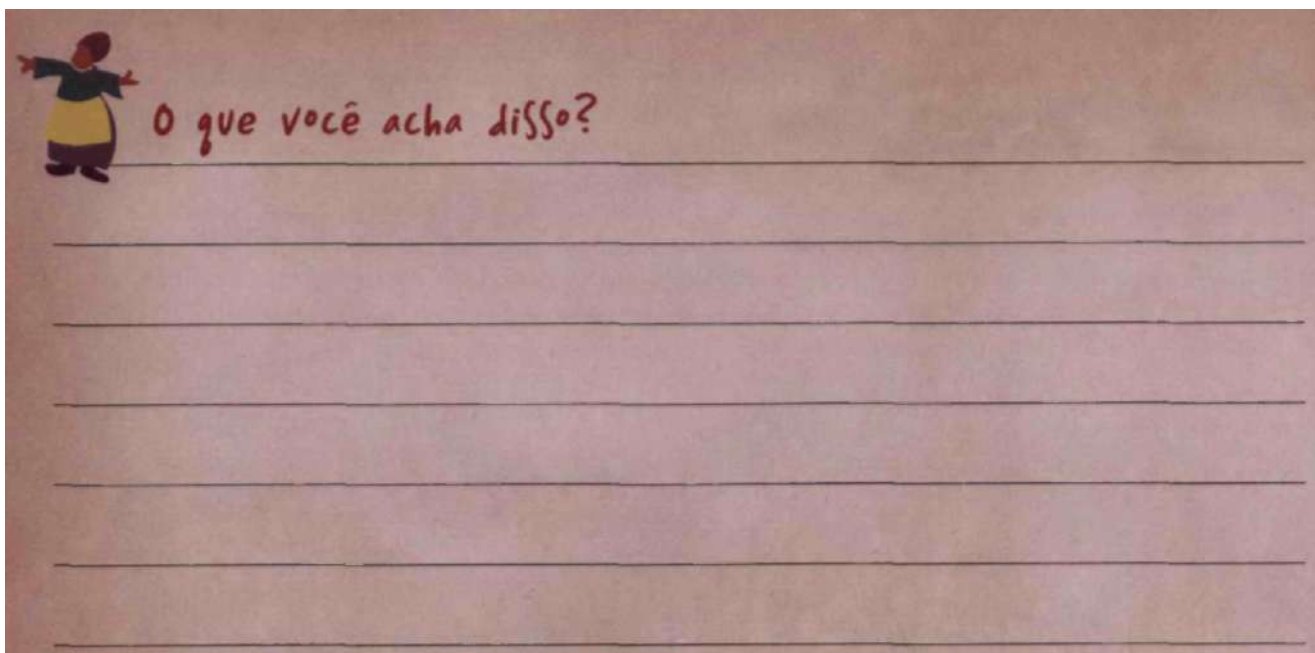 O que você acha disso?